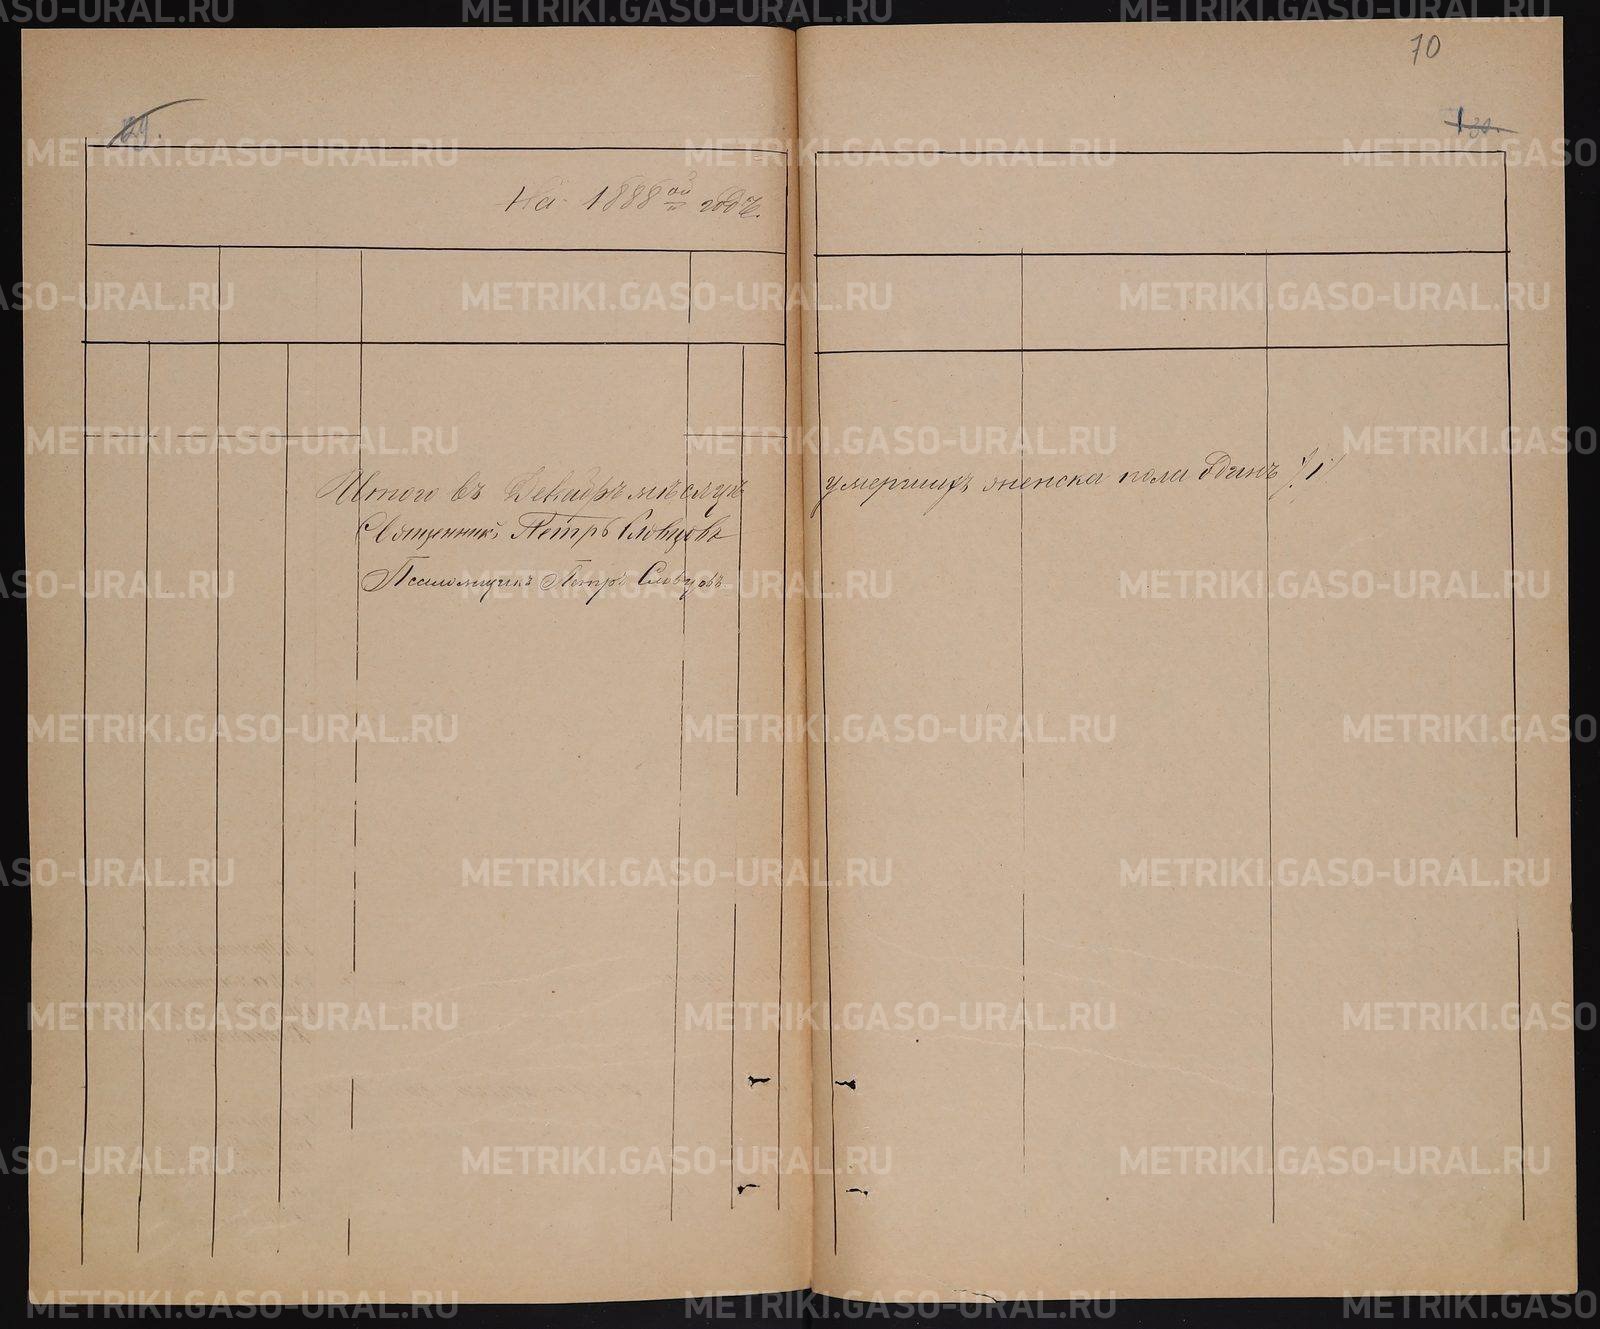 70
29.
30.
На 1888 ой годъ.
Итого въ Декабрѣ мѣсяцѣ умершихъ женска пола Одинъ /1/
Священникъ Петръ Словцовъ
Псаломщикъ Петръ Словцовъ
METRIKI.GASO-URAL.RU